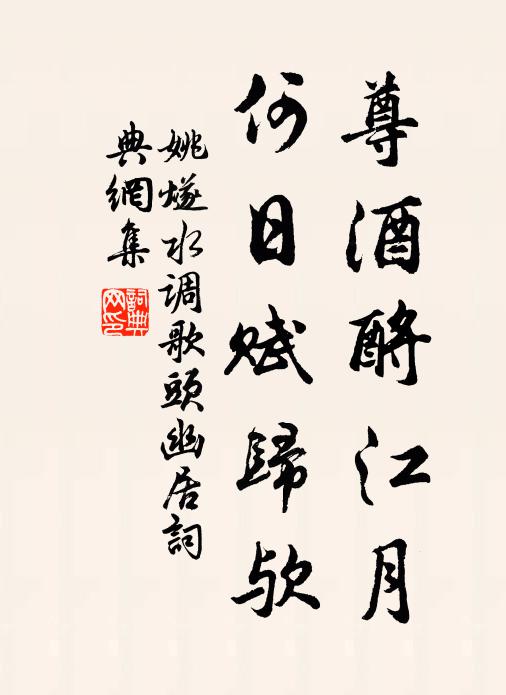 尊酒酹江月
何日賦歸欤
姚燧水调歌頭幽居詞
典網集
詞典
网印